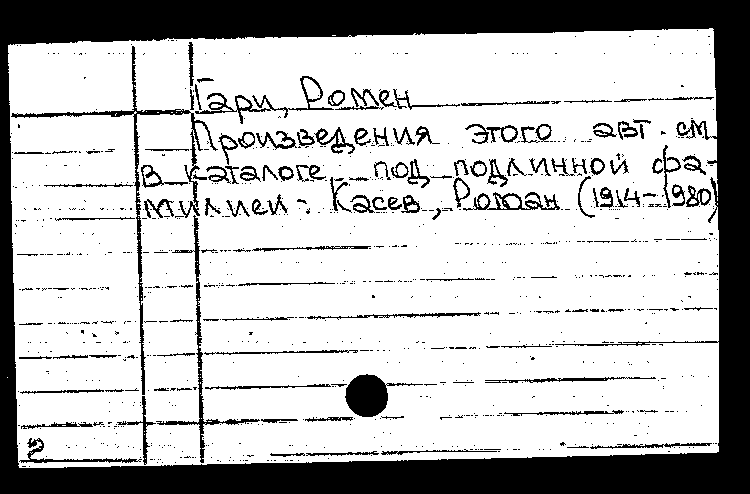 Гари, Ромен
Произведения этого авт. см.
в каталоге под подлинной фа-
милией: Касев, Роман (1914-1980)